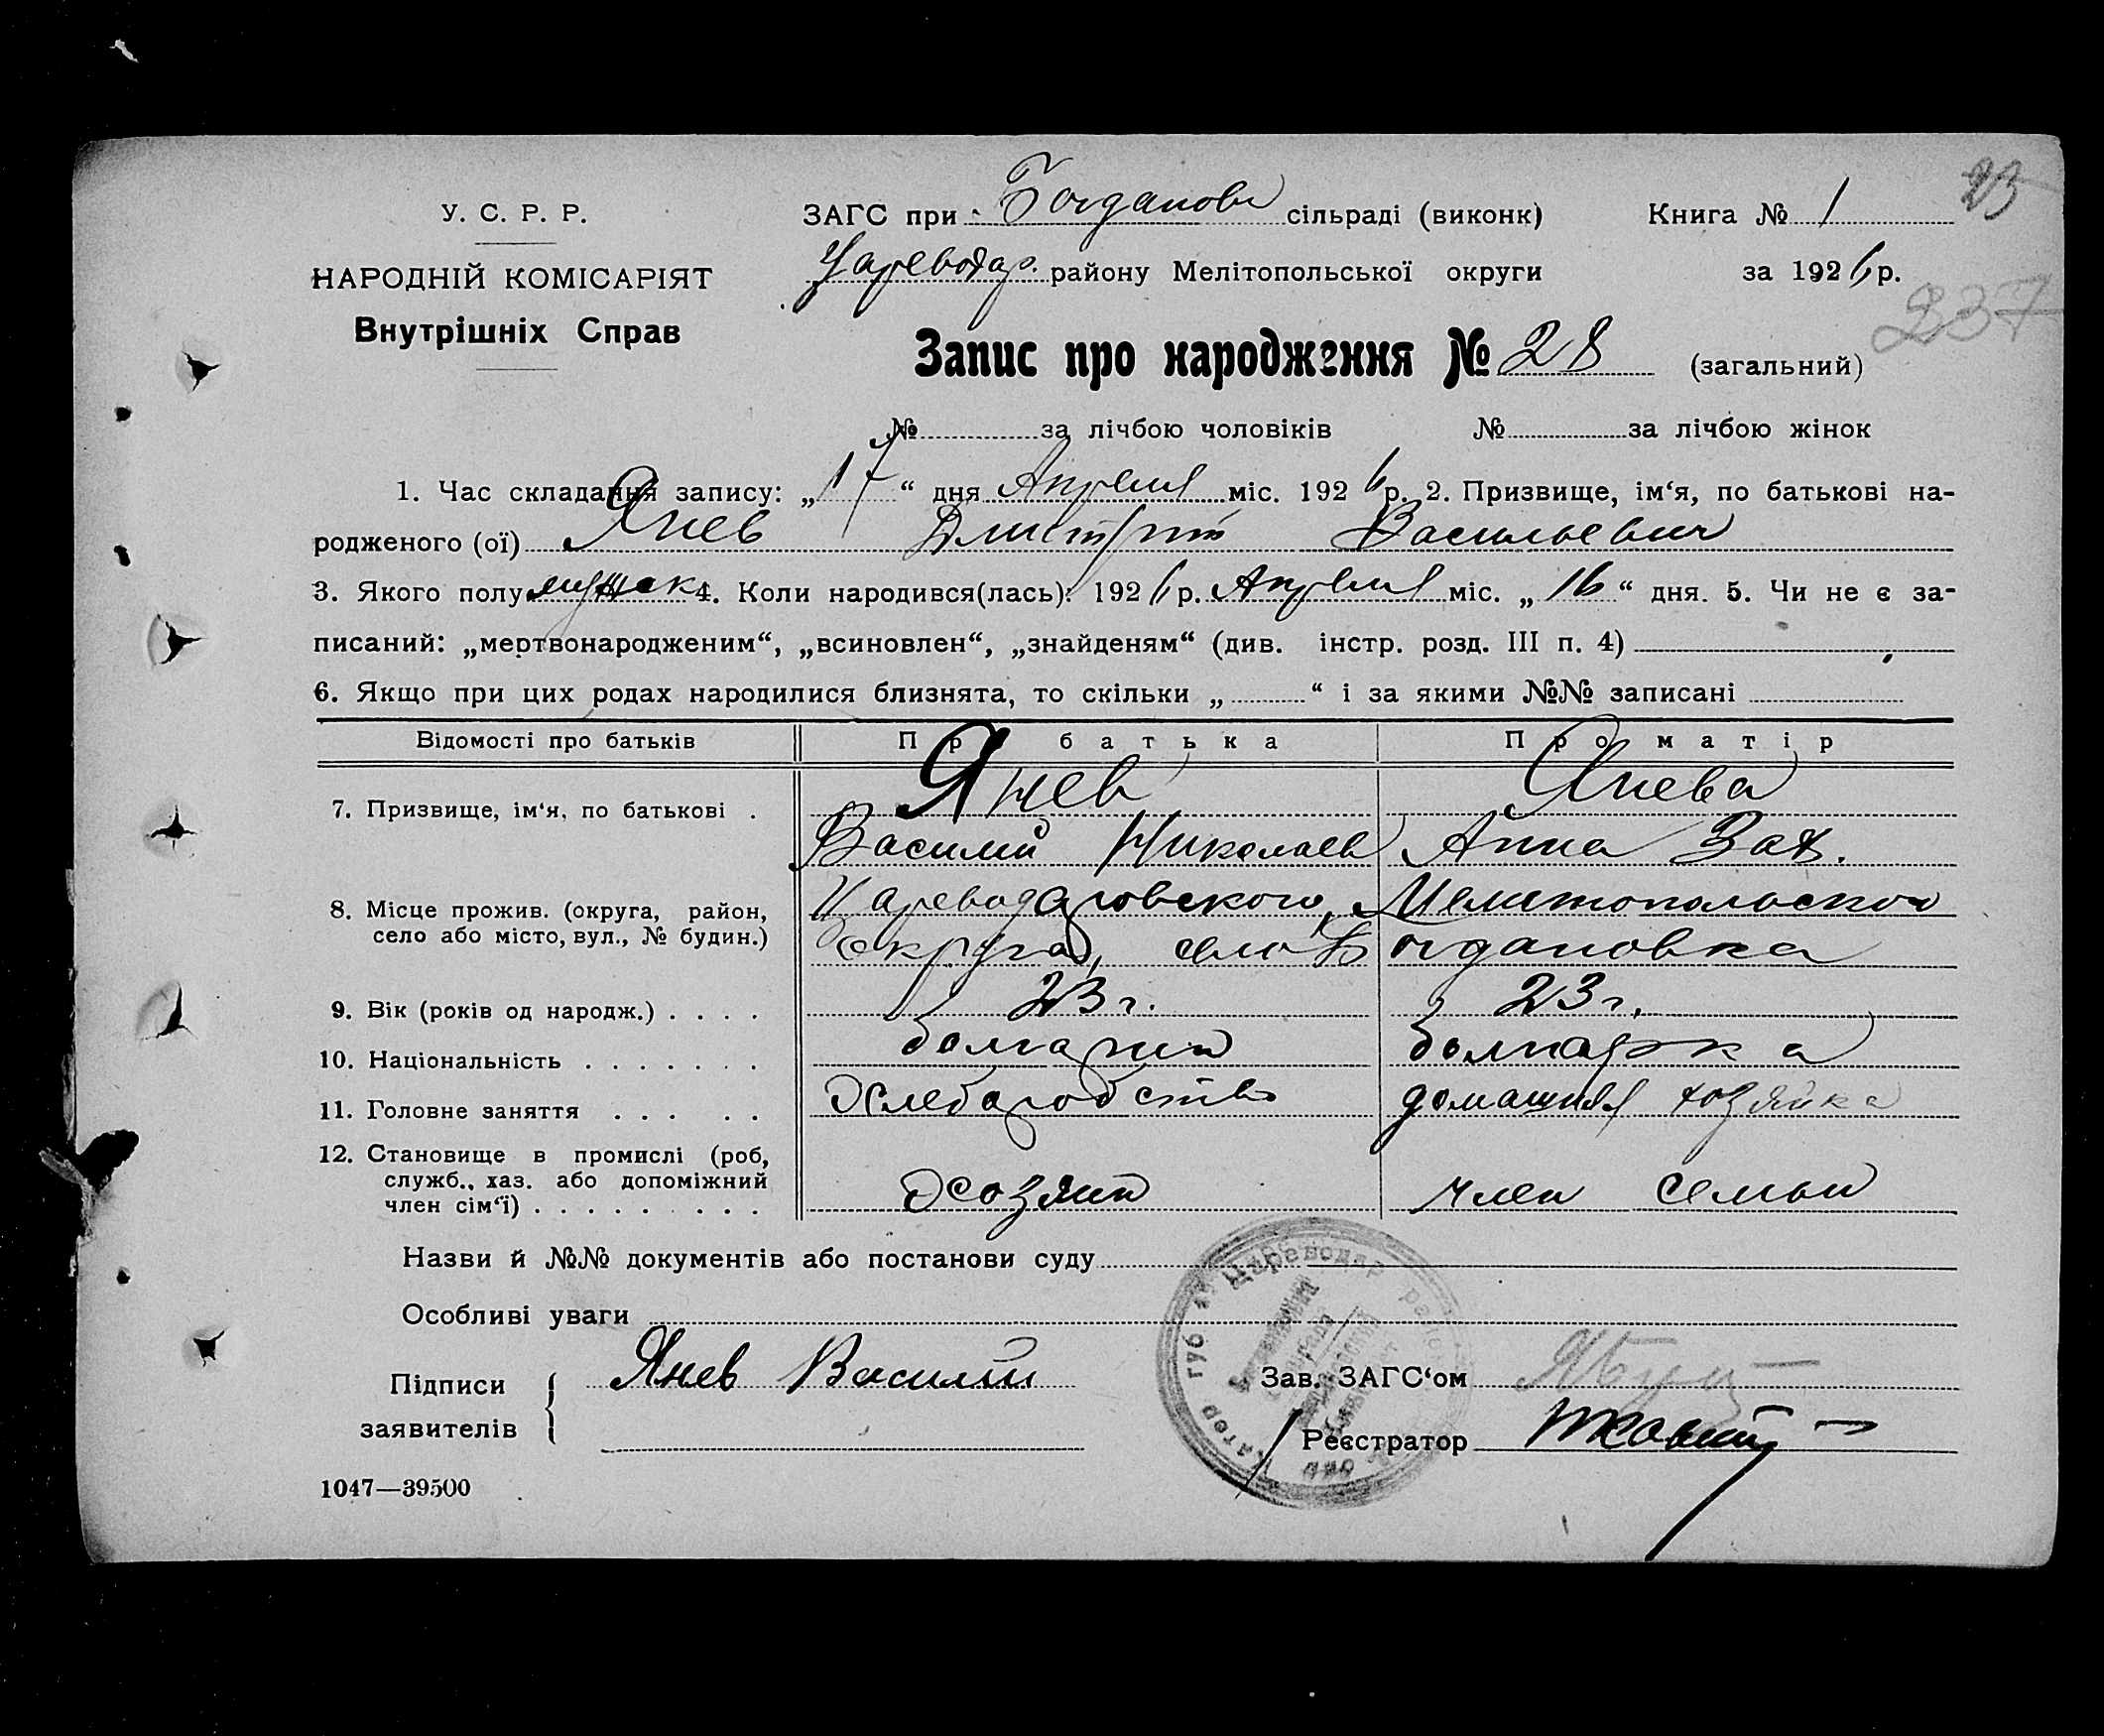 23
У. С. Р. Р.
ЗАГС при Богданов сільраді (виконк)
Книга № 1
НАРОДНІЙ КОМІСАРІЯТ
Цареводар. району Мелітопольської округи
за 1926 р.
Внутрішніх Справ
237
Запис про народження № 28 (загальний)
№ за лічбою чоловіків № за лічбою жінок
1. Час складання запису: „17“ дня Апреля міс. 1926 р. 2. Призвище, ім‘я, по батькові на-
родженого (ої) Янев Дмитрий Васильевич
3. Якого полу мужск 4. Коли народився(лась): 1926 р. Апреля міс. „16“ дня. 5. Чи не є за-
писаний: „мертвонародженим“, „всиновлен“, „знайденям“ (див. інстр. розд. III п. 4)
6. Якщо при цих родах народилися близнята, то скільки „ “ і за якими №№ записані
Відомості про батьків Про батька Про матір
7. Призвище, ім‘я, по батькові . Янев Янева
Василий Николаев Анна Зах.
8. Місце прожив. (округа, район, село або місто, вул., № будин.) Цареводаровского, Мелитопольской
округа, село Богдановка
9. Вік (років од народж.) . . . . 23 г. 23 г.
10. Національність . . . . . . . болгарин болгарка
11. Головне заняття . . . . . Хлебородство домашняя хозяйка
12. Становище в промислі (роб,
служб., хаз. або допоміжний
член сім‘ї) . . . . . . . . . Хозяин член семьи
Назви й №№ документів або постанови суду
Особливі уваги
Підписи заявителів Янев Василий
Зав. ЗАГС‘ом
Реєстратор
1047—39500